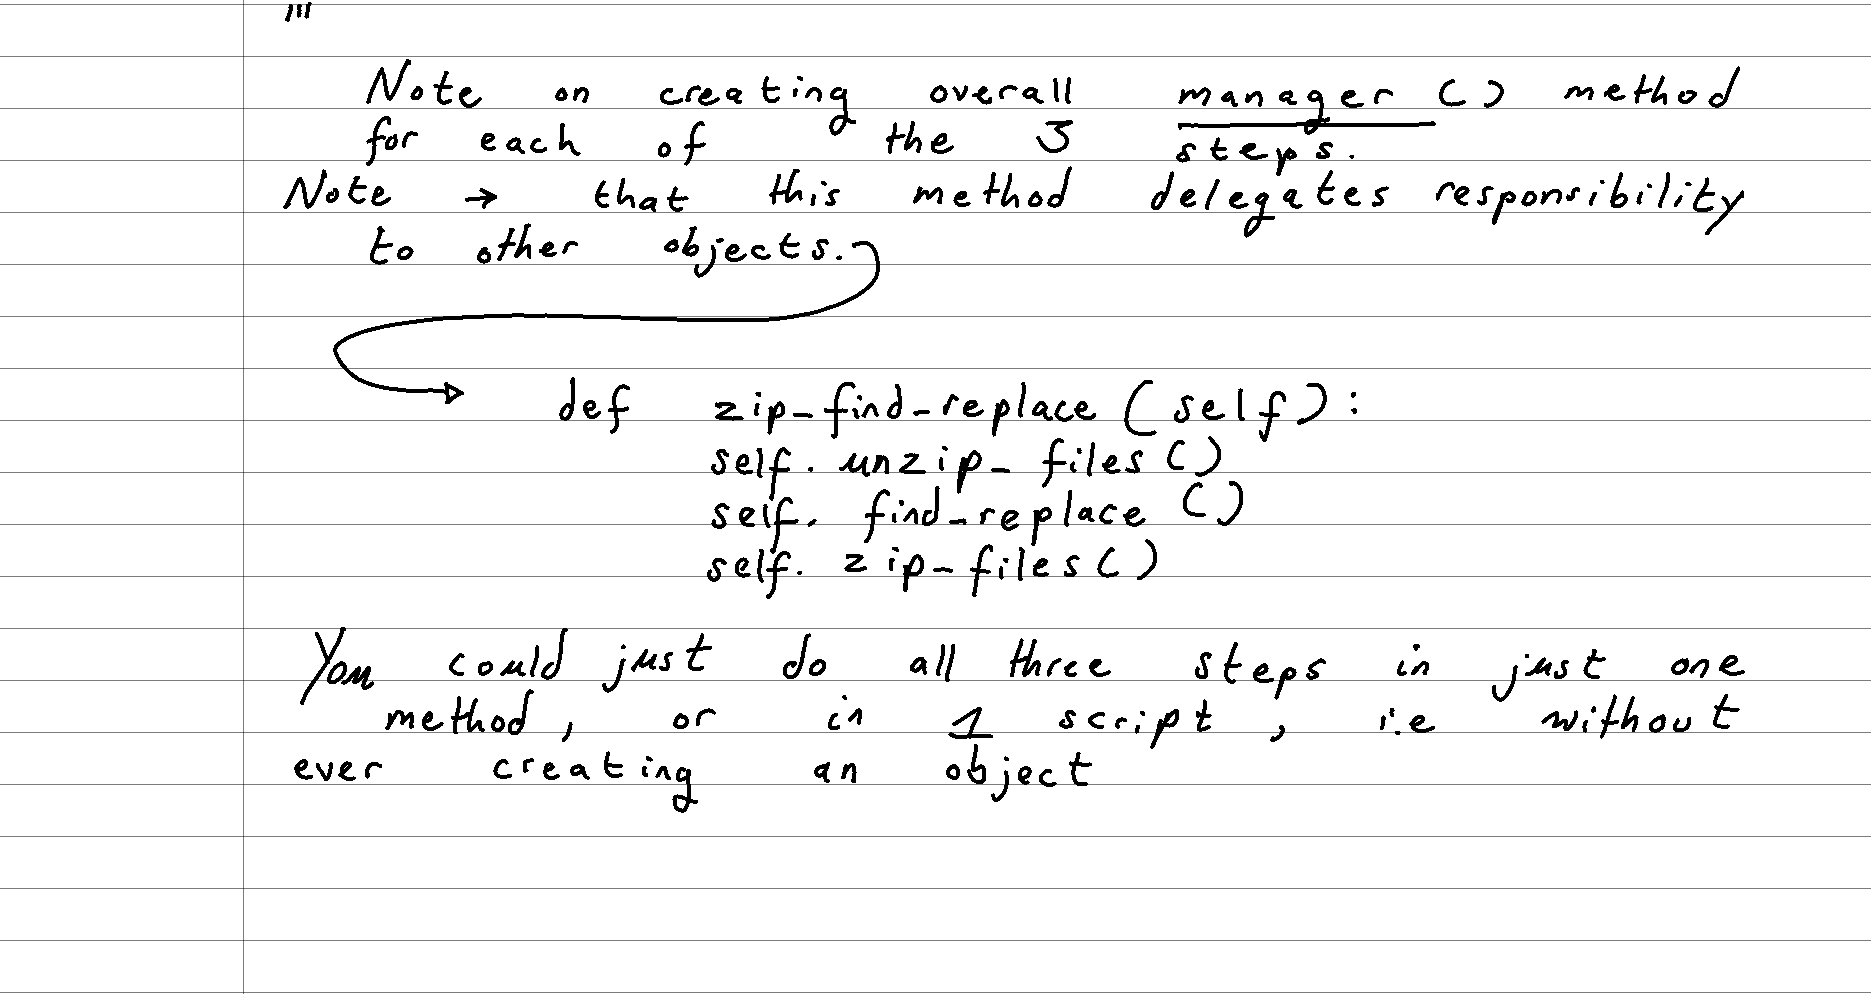 "'
Note on creating overall manager () method
for each of the 3 steps.
Note → that this method delegates responsibility
to other objects.
def zip_find_replace (self):
self. unzip_ files ()
self. find_replace ()
self. zip_files()
You could just do all three steps in just one
method, or in 1 script, i.e without
ever creating an object